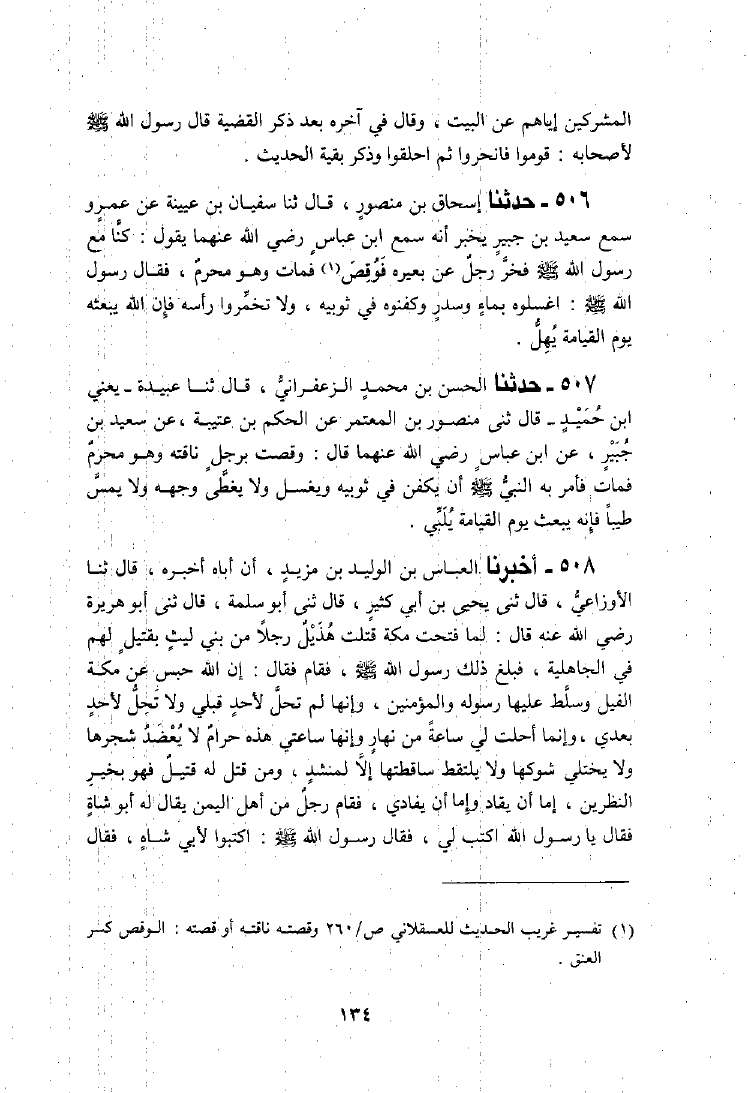 المشركين إياهم عن البيت ، وقال في آخره بعد ذكر القضية قال رسول الله ﷺ
لأصحابه : قوموا فانحروا ثم احلقوا وذكر بقية الحديث .
٥٠٦ - حدثنا إسحاق بن منصور ، قال ثنا سفيان بن عيينة عن عمرو
سمع سعيد بن جبير يخبر أنه سمع ابن عباس رضي الله عنهما يقول : كنَّا مع
رسول الله ﷺ فخرَّ رجلٌ عن بعيره فَوُقِصَ(١) فمات وهو محرمٌ ، فقال رسول
الله ﷺ : اغسلوه بماءٍ وسدرٍ وكفنوه في ثوبيه ، ولا تخمِّروا رأسه فإن الله يبعثه
يوم القيامة يُهِلُّ .
٥٠٧ - حدثنا الحسن بن محمدٍ الزعفرانيُّ ، قال ثنا عبيدة - يعني
ابن حُمَيْدٍ - قال ثنى منصور بن المعتمر عن الحكم بن عتيبة ، عن سعيد بن
جُبَيْرٍ ، عن ابن عباسٍ رضي الله عنهما قال : وقصت برجلٍ ناقته وهو محرمٌ
فمات فأمر به النبيُّ ﷺ أن يكفن في ثوبيه ويغسل ولا يغطَّى وجهه ولا يمسَّ
طيباً فإنه يبعث يوم القيامة يُلَبِّي .
٥٠٨ - أخبرنا العباس بن الوليد بن مزيدٍ ، أن أباه أخبره ، قال ثنا
الأوزاعيُّ ، قال ثنى يحيى بن أبي كثيرٍ ، قال ثنى أبو سلمة ، قال ثنى أبو هريرة
رضي الله عنه قال : لما فتحت مكة قتلت هُذَيْلٌ رجلاً من بني ليثٍ بقتيلٍ لهم
في الجاهلية ، فبلغ ذلك رسول الله ﷺ ، فقام فقال : إن الله حبس عن مكة
الفيل وسلَّط عليها رسوله والمؤمنين ، وإنها لم تحلَّ لأحدٍ قبلي ولا تَحِلُّ لأحدٍ
بعدي ، وإنما أحلت لي ساعةً من نهارٍ وإنها ساعتي هذه حرامٌ لا يُعْضَدُ شجرها
ولا يختلي شوكها ولا يلتقط ساقطتها إلَّا لمنشدٍ ، ومن قتل له قتيلٌ فهو بخيرِ
النظرين ، إما أن يقاد وإما أن يفادي ، فقام رجلٌ من أهل اليمن يقال له أبو شاةٍ
فقال يا رسول الله اكتب لي ، فقال رسول الله ﷺ : اكتبوا لأبي شاهٍ ، فقال
(١) تفسير غريب الحديث للعسقلاني ص/٢٦٠ وقصته ناقته أو قصته : الوقص كسر
العنق .
١٣٤